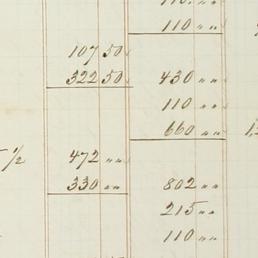 110 〃
107 50
322 50 430 〃
110 〃
660 〃
1/2 472 〃
330 〃 802 〃
215 〃
110 〃